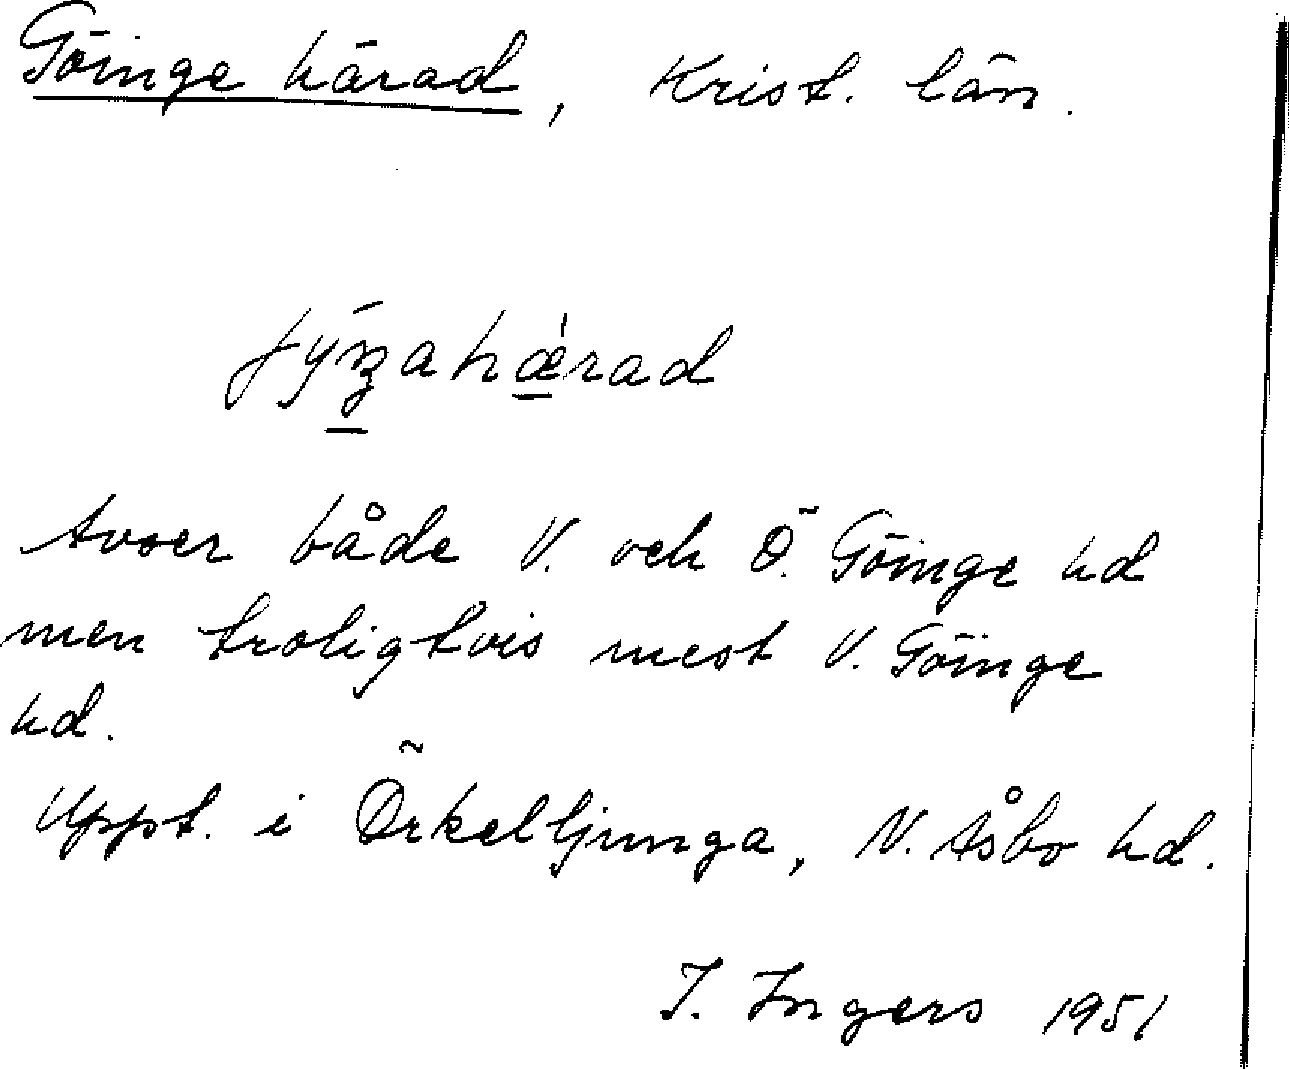 Göinge härad, Krist. län.
jýŋahæ̀rad
Avser både V. och Ö. Göinge hd
men troligtvis mest V. Göinge
hd.
Uppt. i Örkelljunga, N. Åsbo hd.
I. Ingers 1951